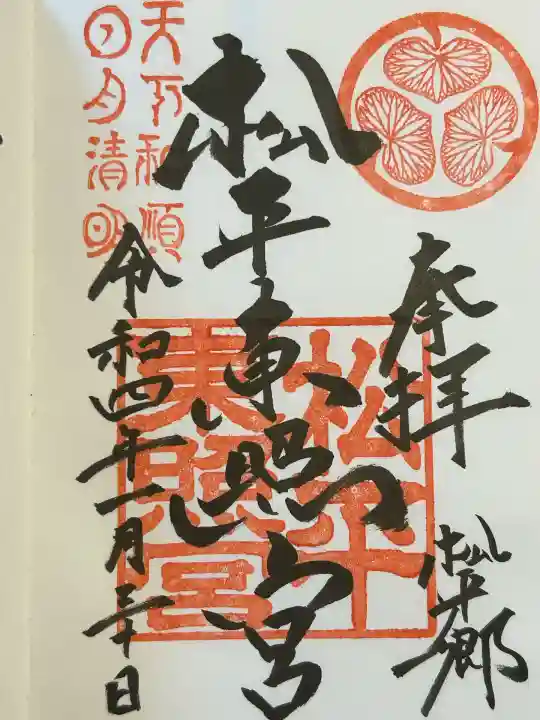 奉拝
松平郷
松平東照宮
松平
東照宮
令和四年一月三十日
天下和順
日月清明